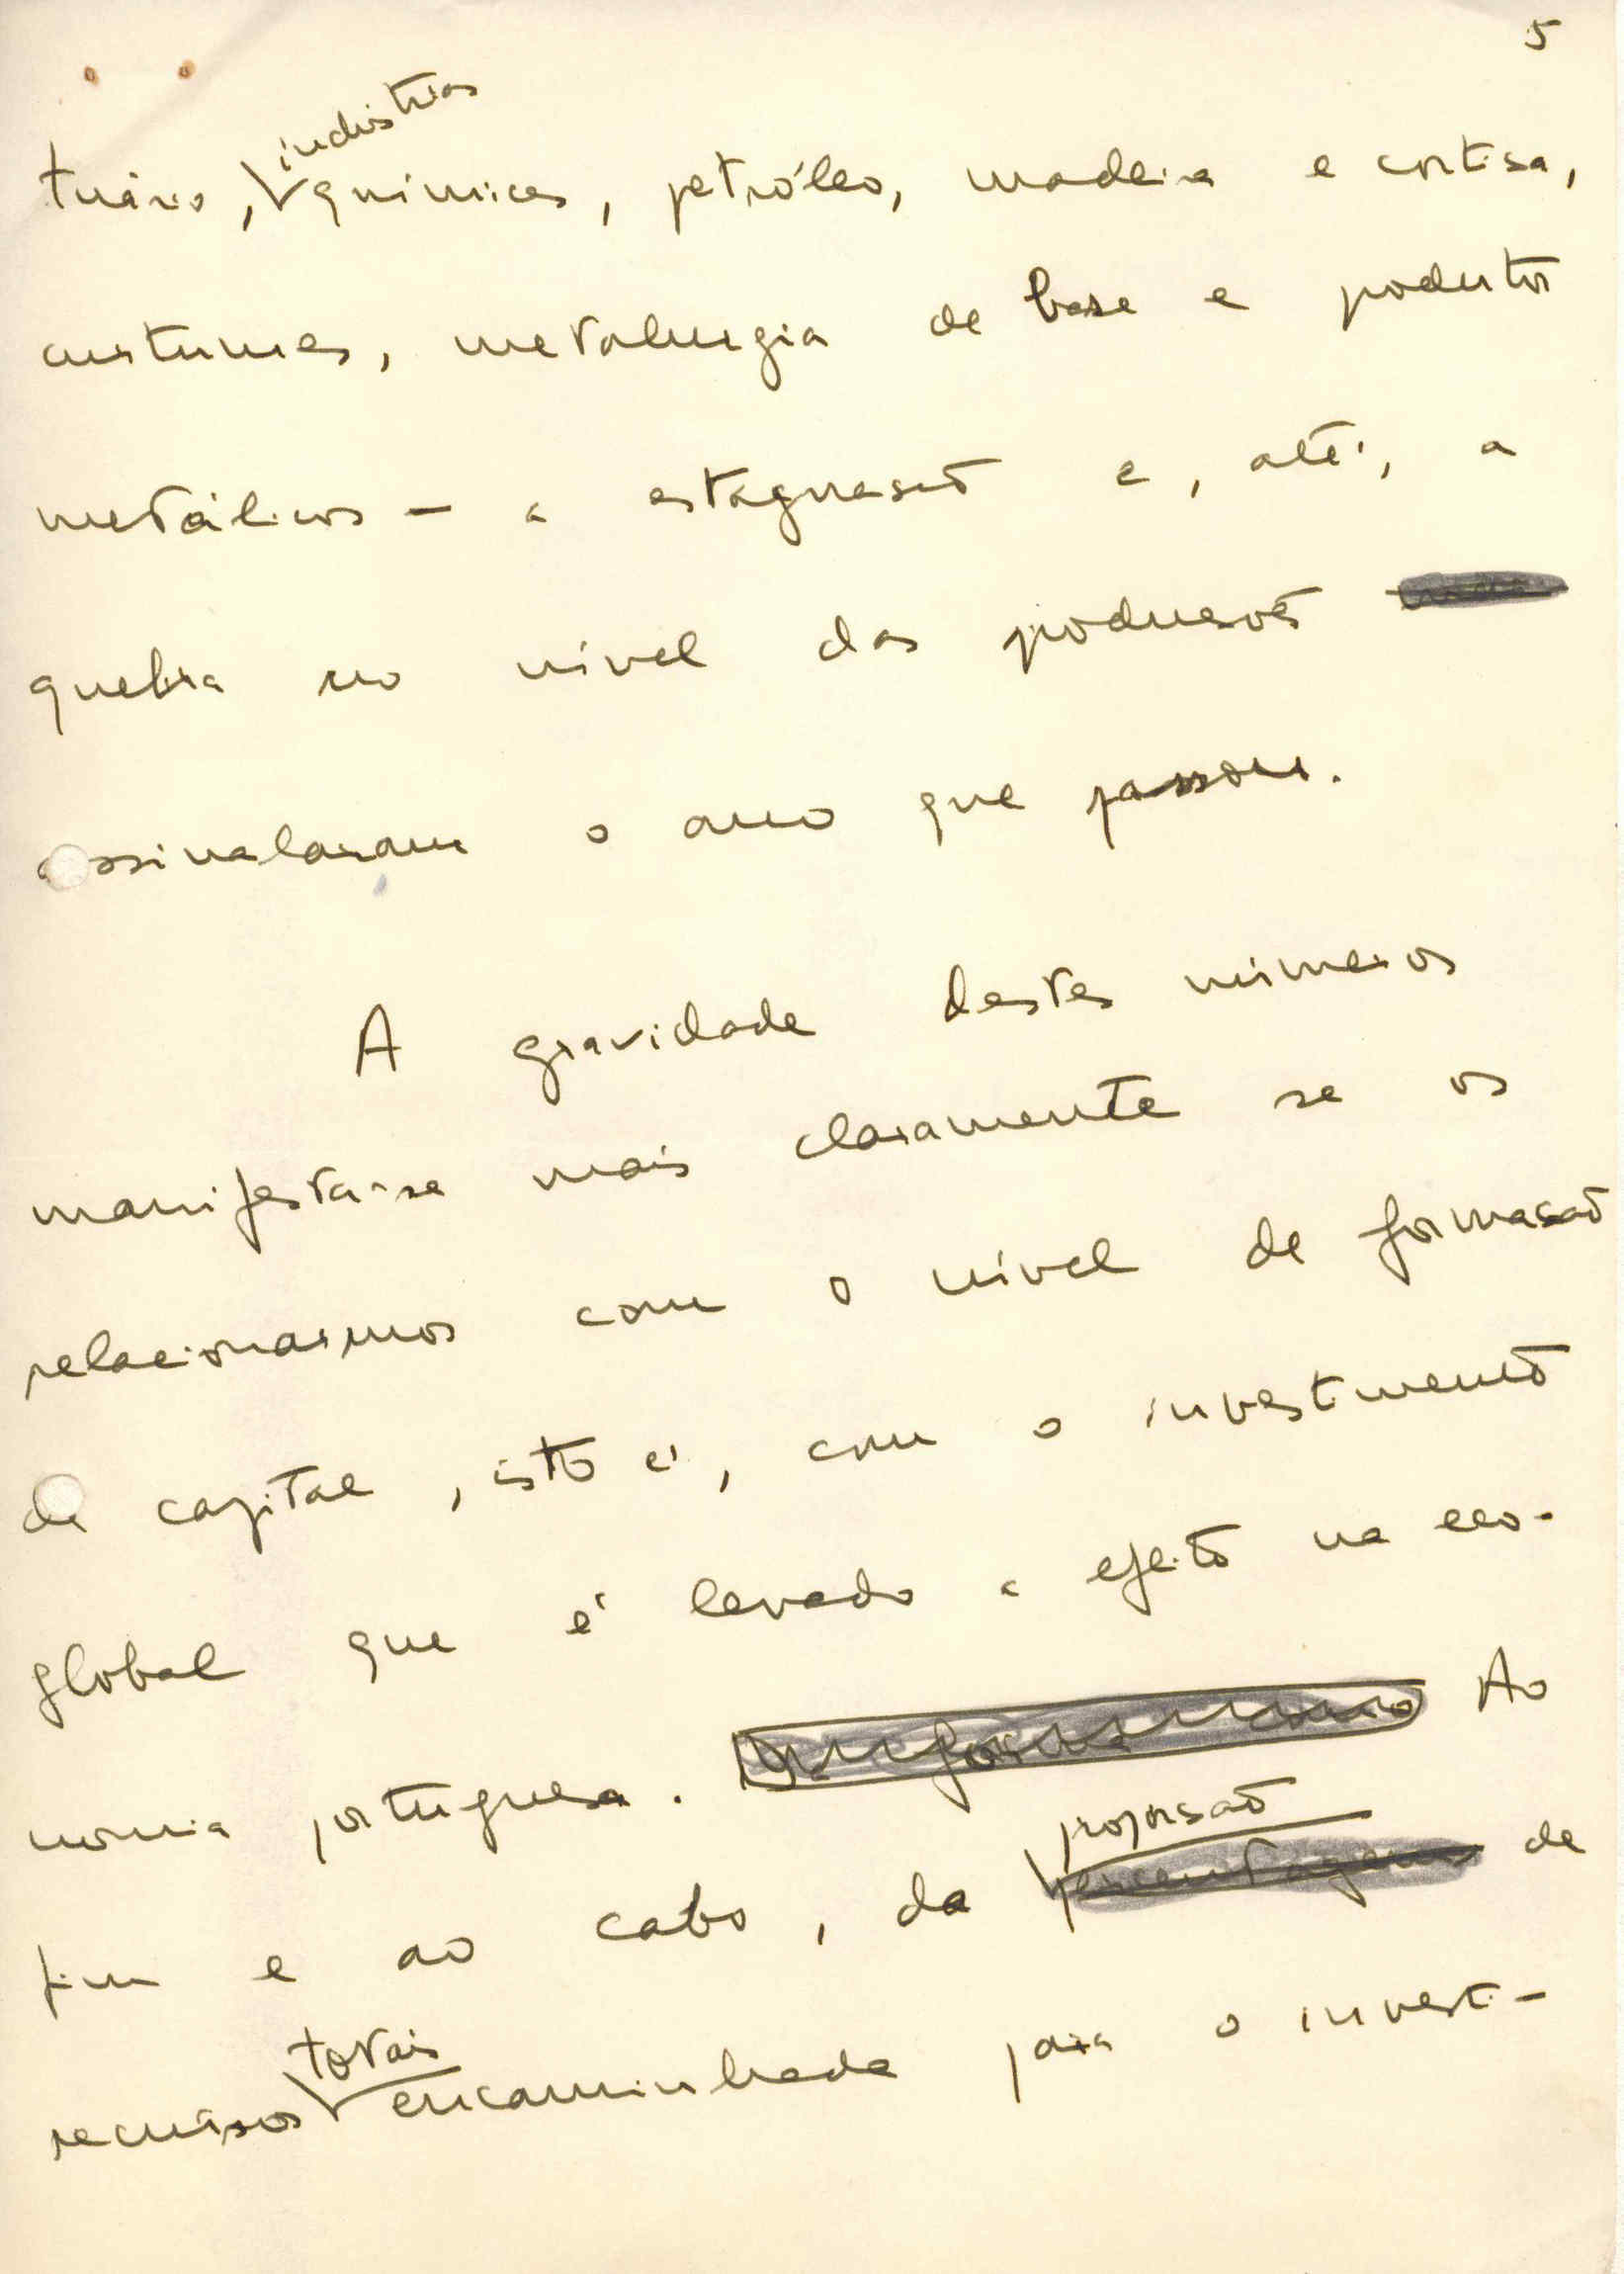 5
tuário, indústrias químicas, petróleo, madeira e cortiça,
curtumes, metalurgia de base e produtos
metálicos — a estagnação e, até, a
quebra no nível das produções
assinalaram o ano que passou.
A gravidade destes números
manifesta-se mais claramente se os
relacionarmos com o nível de formação
de capital, isto é, com o investimento
global que é levado a efeito na eco-
nomia portuguesa. Ao
fim e ao cabo, da proporção percentagem de
recursos totais encaminhada para o investi-